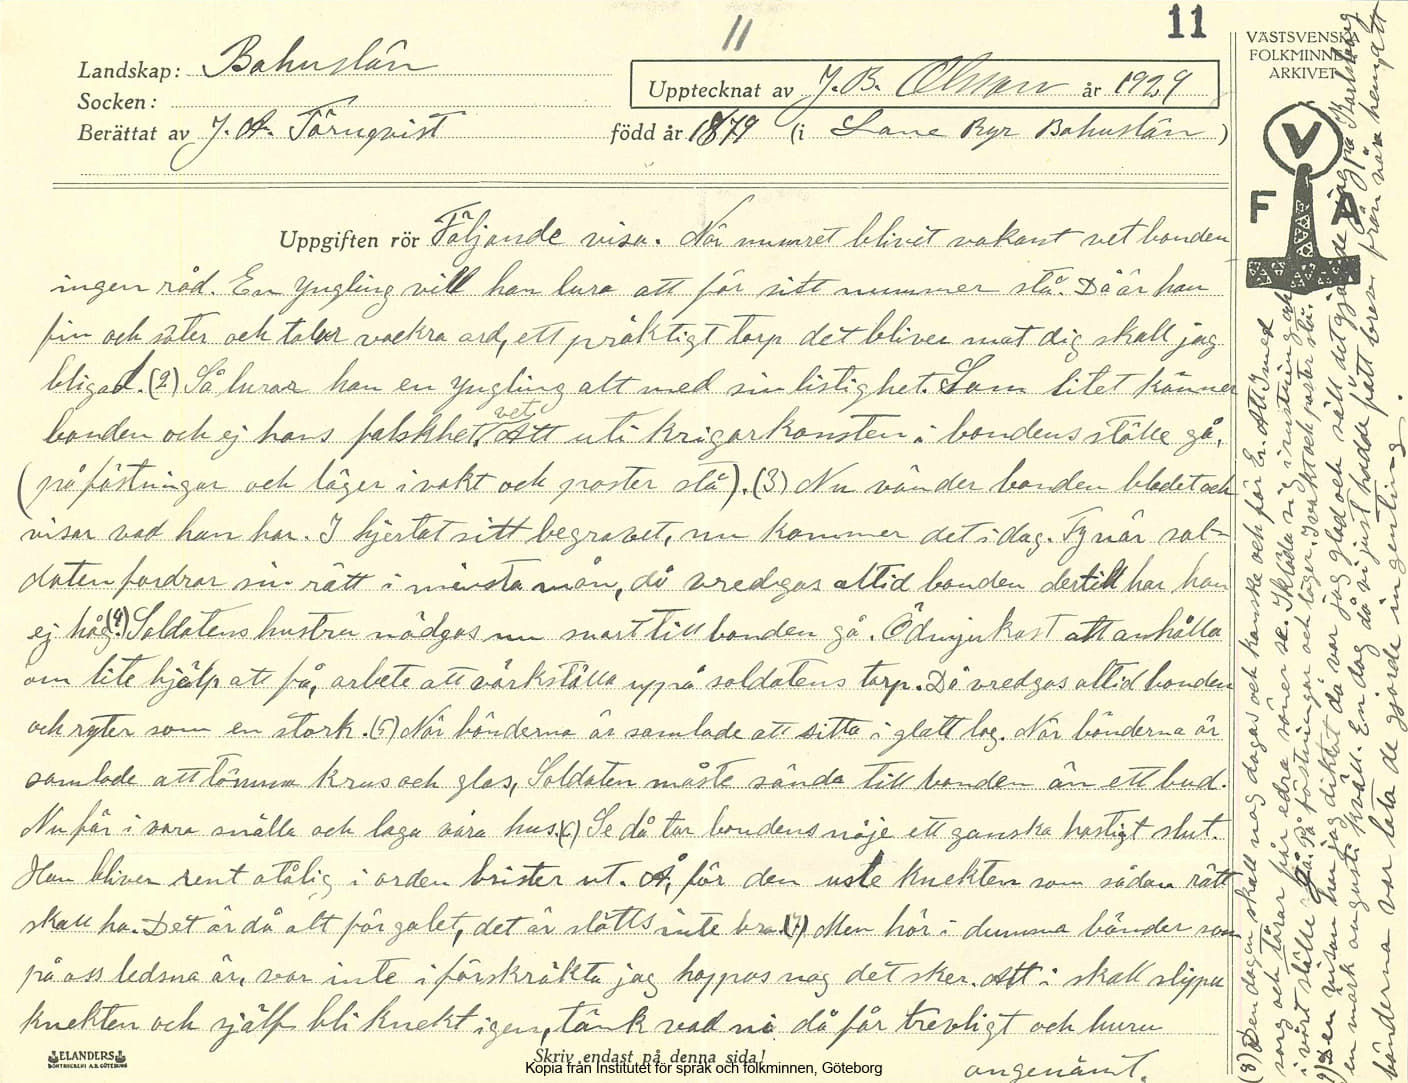 11
11
Landskap: Bohuslän
Socken:
Upptecknat av J. B. Olsson år 1929
Berättat av J. A. Törnqvist född år 1879 (i Lane Ryr Bohuslän)
Uppgiften rör Följande visa. När numret blivit vakant vet bonden
ingen råd. En yngling vill han lura att för sitt nummer stå. Då är han
fin och söter och talar vackra ord, ett präktigt torp det bliver mot dig skall jag
bli god. (2) Så lurar han en yngling allt med sin listighet. Som litet känner
bonden och ej hans falskhet vet. Att uti krigarkonsten i bondens ställe gå,
(på fästningar och läger i vakt och poster stå). (3) Nu vänder bonden bladet och
visar vad han har. I hjertat sitt begravet, nu kommer det i dag. Ty när sol-
daten fordrar sin rätt i minsta mån, då vredgas alltid bonden dertill har han
ej håg. (4) Soldatens hustru nödgas nu snart till bonden gå. Ödmjukast att anhålla
om lite hjälp att få, arbete att värkställa uppå soldatens torp. Då vredgas alltid bonden
och ryter som en stork. (5) När bönderna är samlade att sitta i glatt lag. När bönderna är
samlade att tömma krus och glas, Soldaten måste sända till bonden än ett bud.
Nu får i vara snälla och laga våra hus. (6) Se då tar bondens nöje ett ganska hastigt slut.
Han bliver rent otålig i orden brister ut. Å, för den usle knekten som sådan rätt
skall ha. Det är då allt för galet, det är slätts inte bra. (7) Men hör i dumma bönder som
på oss ledsna är, var inte i förskräkta jag hoppas nog det sker. Att i skall slippa
knekten och själf bli knekt igen, tänk vad ni då får trevligt och huru
angenämt.
(8) Den dagen skall nog dagas och kanske och för Er. Att I med
sorg och tårar får edra söner se. Ikläda sig i rustning och
i vårt ställe gå. På fästningar och läger I vakt och poster stå.
9) Den visan har jag diktat då var jag glad och säll det gjorde jag på Karlsborg
en mörk augusti kväll. En dag då vi just hadde fått brev från våra hem, att
bönderna var lata de gjorde ingenting.
VÄSTSVENSKA
FOLKMINNES
ARKIVET
V
F A
ELANDERS
BOKTRYCKERI A.B. GÖTEBORG
Skriv endast på denna sida!
Kopia från Institutet för språk och folkminnen, Göteborg